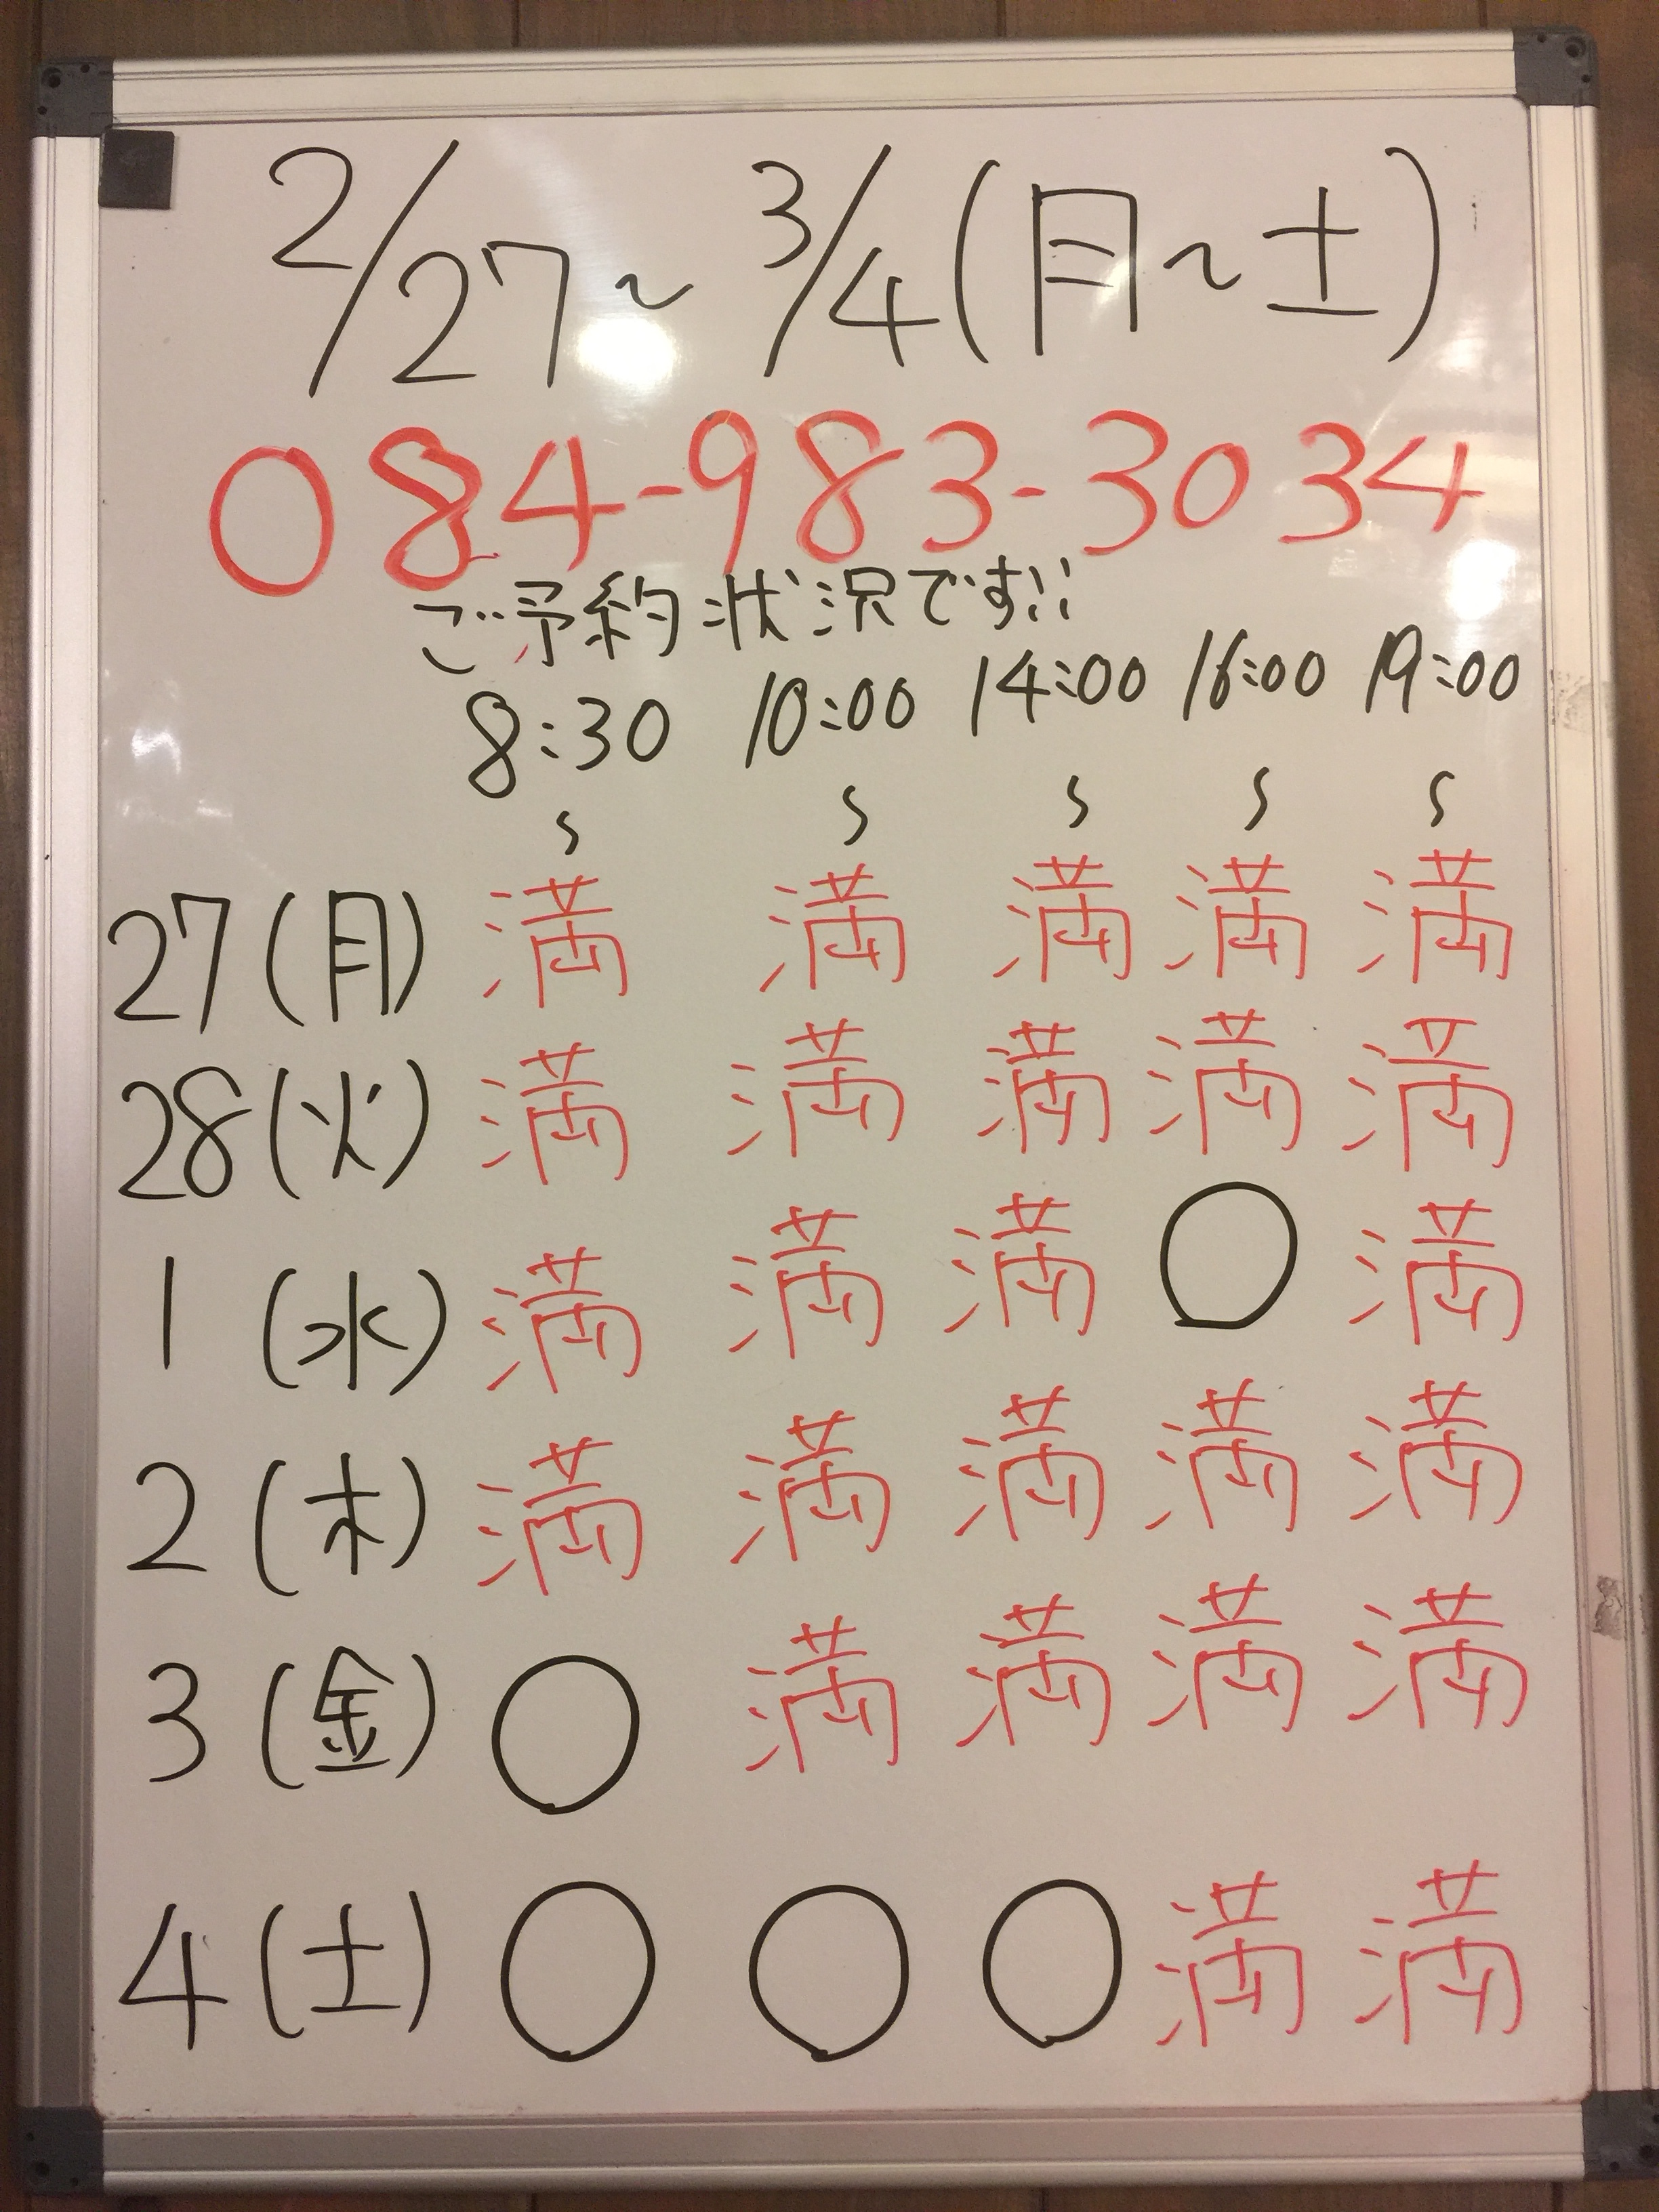 2/27~3/4(月~土)
084-983-3034
ご予約状況です!!
8:30 10:00 14:00 16:00 19:00
~ ~ ~ ~ ~
27(月) 満 満 満 満 満
28(火) 満 満 満 満 満
1(水) 満 満 満 ○ 満
2(木) 満 満 満 満 満
3(金) ○ 満 満 満 満
4(土) ○ ○ ○ 満 満